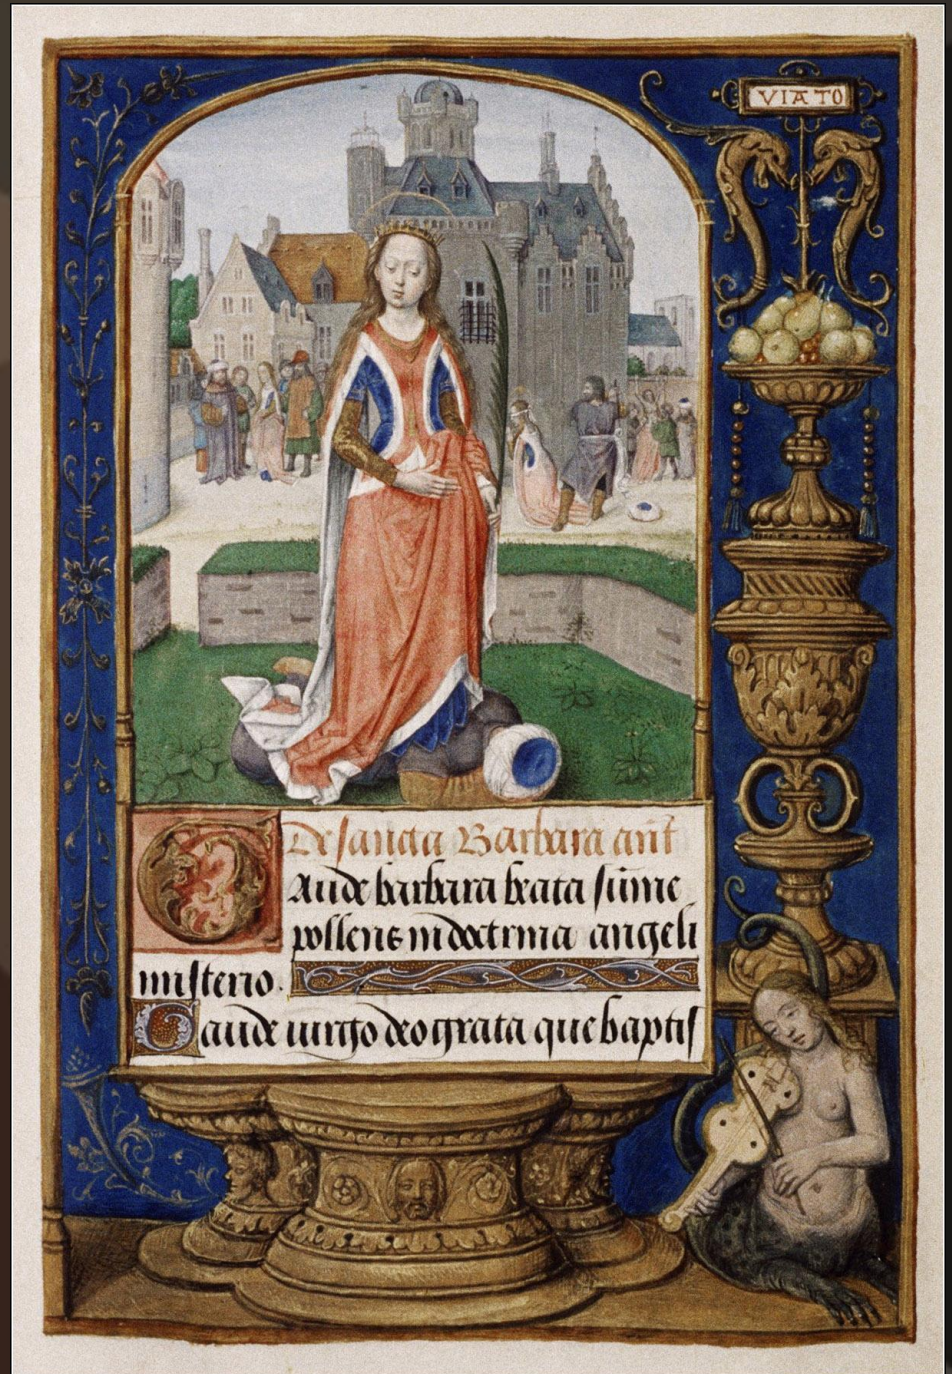 VIATO
De sancta Barbara ant̃
Gaude barbara beata sũme
pollens in doctrina angeli
misterio.
Gaude uirgo deo grata que baptis